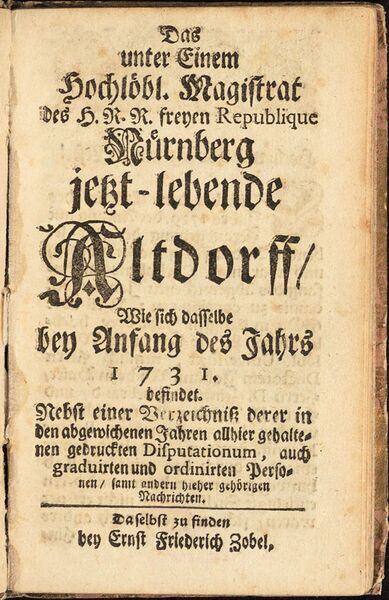 Das
unter Einem
Hochlöbl. Magistrat
des H. R. R. freyen Republique
Nürnberg
jetzt-lebende
Altdorff/
Wie sich dasselbe
bey Anfang des Jahrs
1731.
befindet.
Nebst einer Verzeichniß derer in
den abgewichenen Jahren allhier gehalte-
nen gedruckten Disputationum, auch
graduirten und ordinirten Perso-
nen/ samt andern hieher gehörigen
Nachrichten.
Daselbst zu finden
bey Ernst Friederich Zobel.